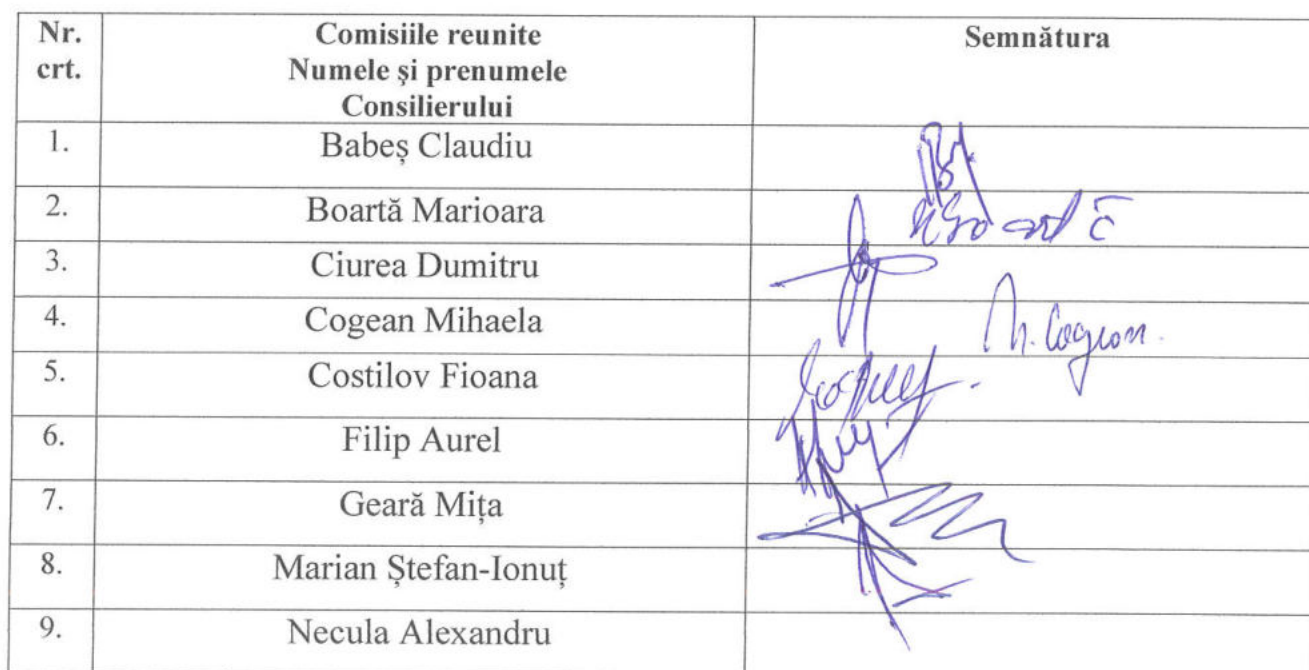 Nr. crt.
Comisiile reunite
Numele şi prenumele
Consilierului
Semnătura
1. Babeș Claudiu
2. Boartă Marioara
3. Ciurea Dumitru
4. Cogean Mihaela
M. Cogean.
5. Costilov Fioana
6. Filip Aurel
7. Geară Mița
8. Marian Ștefan-Ionuț
9. Necula Alexandru